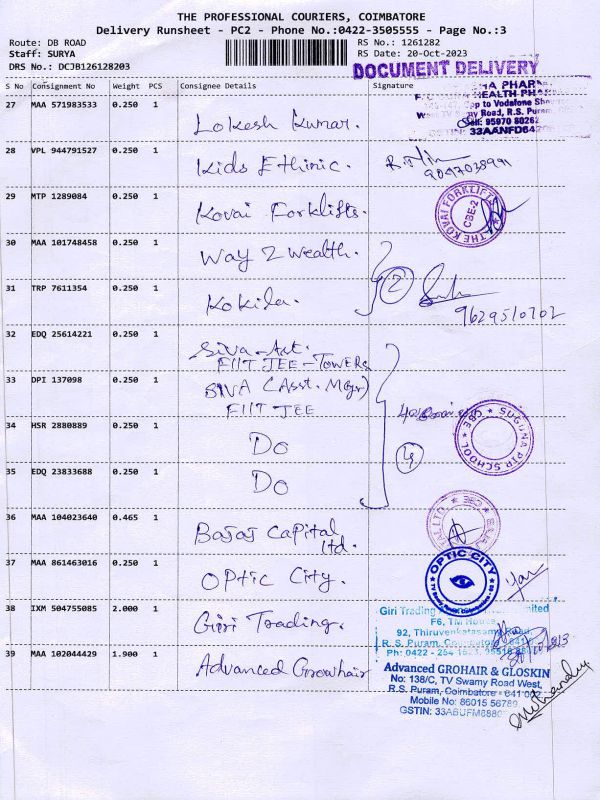 THE PROFESSIONAL COURIERS, COIMBATORE
Delivery Runsheet - PC2 - Phone No.:0422-3505555 - Page No.:3
Route: DB ROAD
Staff: SURYA
DRS No.: DCJB126128203
RS No.: 1261282
RS Date: 20-Oct-2023
DOCUMENT DELIVERY
S No Consignment No Weight PCS Consignee Details Signature
HEALTH
Opp to Vodafone
Road, R.S. Puram
Cell: 95970 80262
27 MAA 571983533 0.250 1 Lokesh Kumar.
28 VPL 944791527 0.250 1 Kids Ethinic.
29 MTP 1289084 0.250 1 Kovai Forklifts.
THE KOVAI FORKLIFTS
CBE-2
30 MAA 101748458 0.250 1 Way 2 Wealth.
2
31 TRP 7611354 0.250 1 Kokila.
9629510702
32 EDQ 25614221 0.250 1 Siva-Ast.
FIIT JEE-Towers
33 DPI 137098 0.250 1 SIVA (Asst. Mgr)
FIIT JEE
34 HSR 2880889 0.250 1 Do
SUGUNA PIP SCHOOL CBE
4
35 EDQ 23833688 0.250 1 Do
36 MAA 104023640 0.465 1 Bajaj Capital
Ltd.
37 MAA 861463016 0.250 1 Optic City.
OPTIC CITY
38 IXM 504755085 2.000 1 Giri Trading.
Giri Trading Limited
F6, TM House,
92, Thiruvenkatasamy Road,
R. S. Puram,
Ph: 0422 - 254
39 MAA 102044429 1.900 1 Advanced Growhair
Advanced GROHAIR & GLOSKIN
No: 138/C, TV Swamy Road West,
R.S. Puram, Coimbatore - 641 002
Mobile No: 86015 56789
GSTIN: 33ABUFM8880